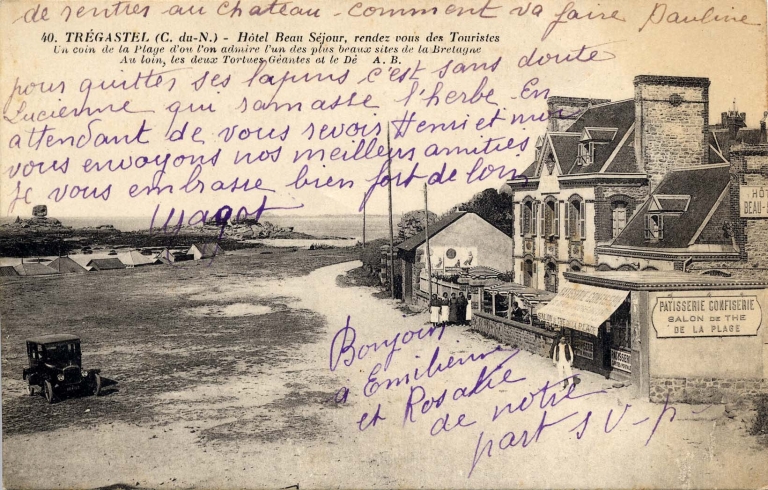 de rentres au Chateau - comment va faire Pauline
40. TRÉGASTEL (C. du-N.) - Hôtel Beau Séjour, rendez vous des Touristes
Un coin de la Plage d'ou l'on admire l'un des plus beaux sites de la Bretagne
Au loin, les deux Tortues Géantes et le Dé A. B.
pour quitter ses lapins c'est sans doute
Lucienne qui ramasse l'herbe. En
attendant de vous revoir Henri et moi
vous envoyons nos meilleurs amitiés
Je vous embrasse bien fort de loin
Magot
HÔT
BEAU-
PATISSERIE CONFISERIE
SALON DE THE
DE LA PLAGE
Bonjour
a Emilienne
et Rosalie
de notre
part s v. p